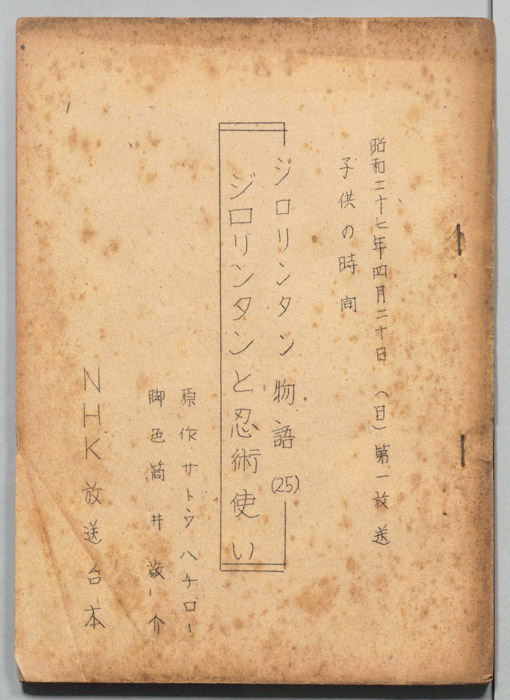 昭和二十七年四月二十日（日）第一放送
子供の時間
ジロリンタン物語(25)
ジロリンタンと忍術使い
原作サトウハチロー
脚色筒井敬介
NHK放送台本